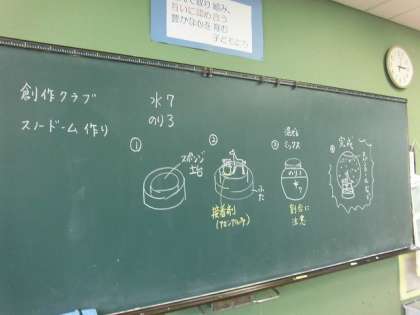 取り組み、
互いに認め合う
豊かな心を育む
子どもたち
創作クラブ
スノードーム作り
水7
のり3
①
スポンジ
土台
②
ふた
接着剤
③
混ぜる
ミックス
のり3
水7
割合に
注意
④
完成